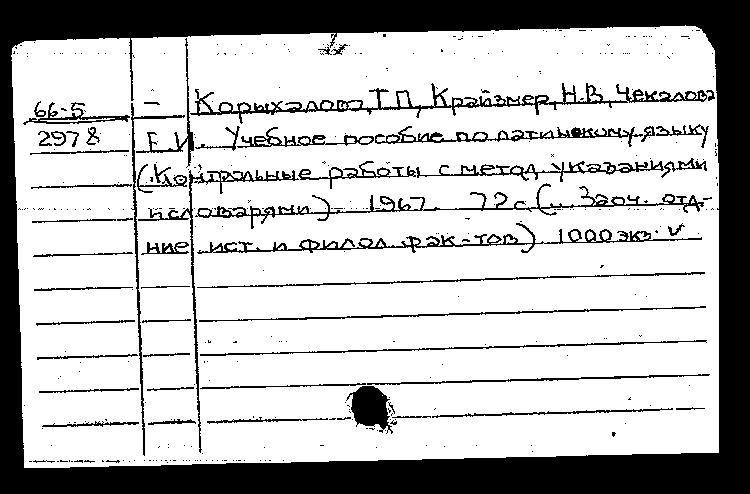 66-5 — Корыхалова, Т.П, Крайзмер, Н.В, Чекалова
2978 Е.И. Учебное пособие по латинскому языку
(Контрольные работы с метод. указаниями
и словарями). 1967. 72 с (... Заоч. отд-
ние ист. и филол. фак-тов) 1000 экз. v